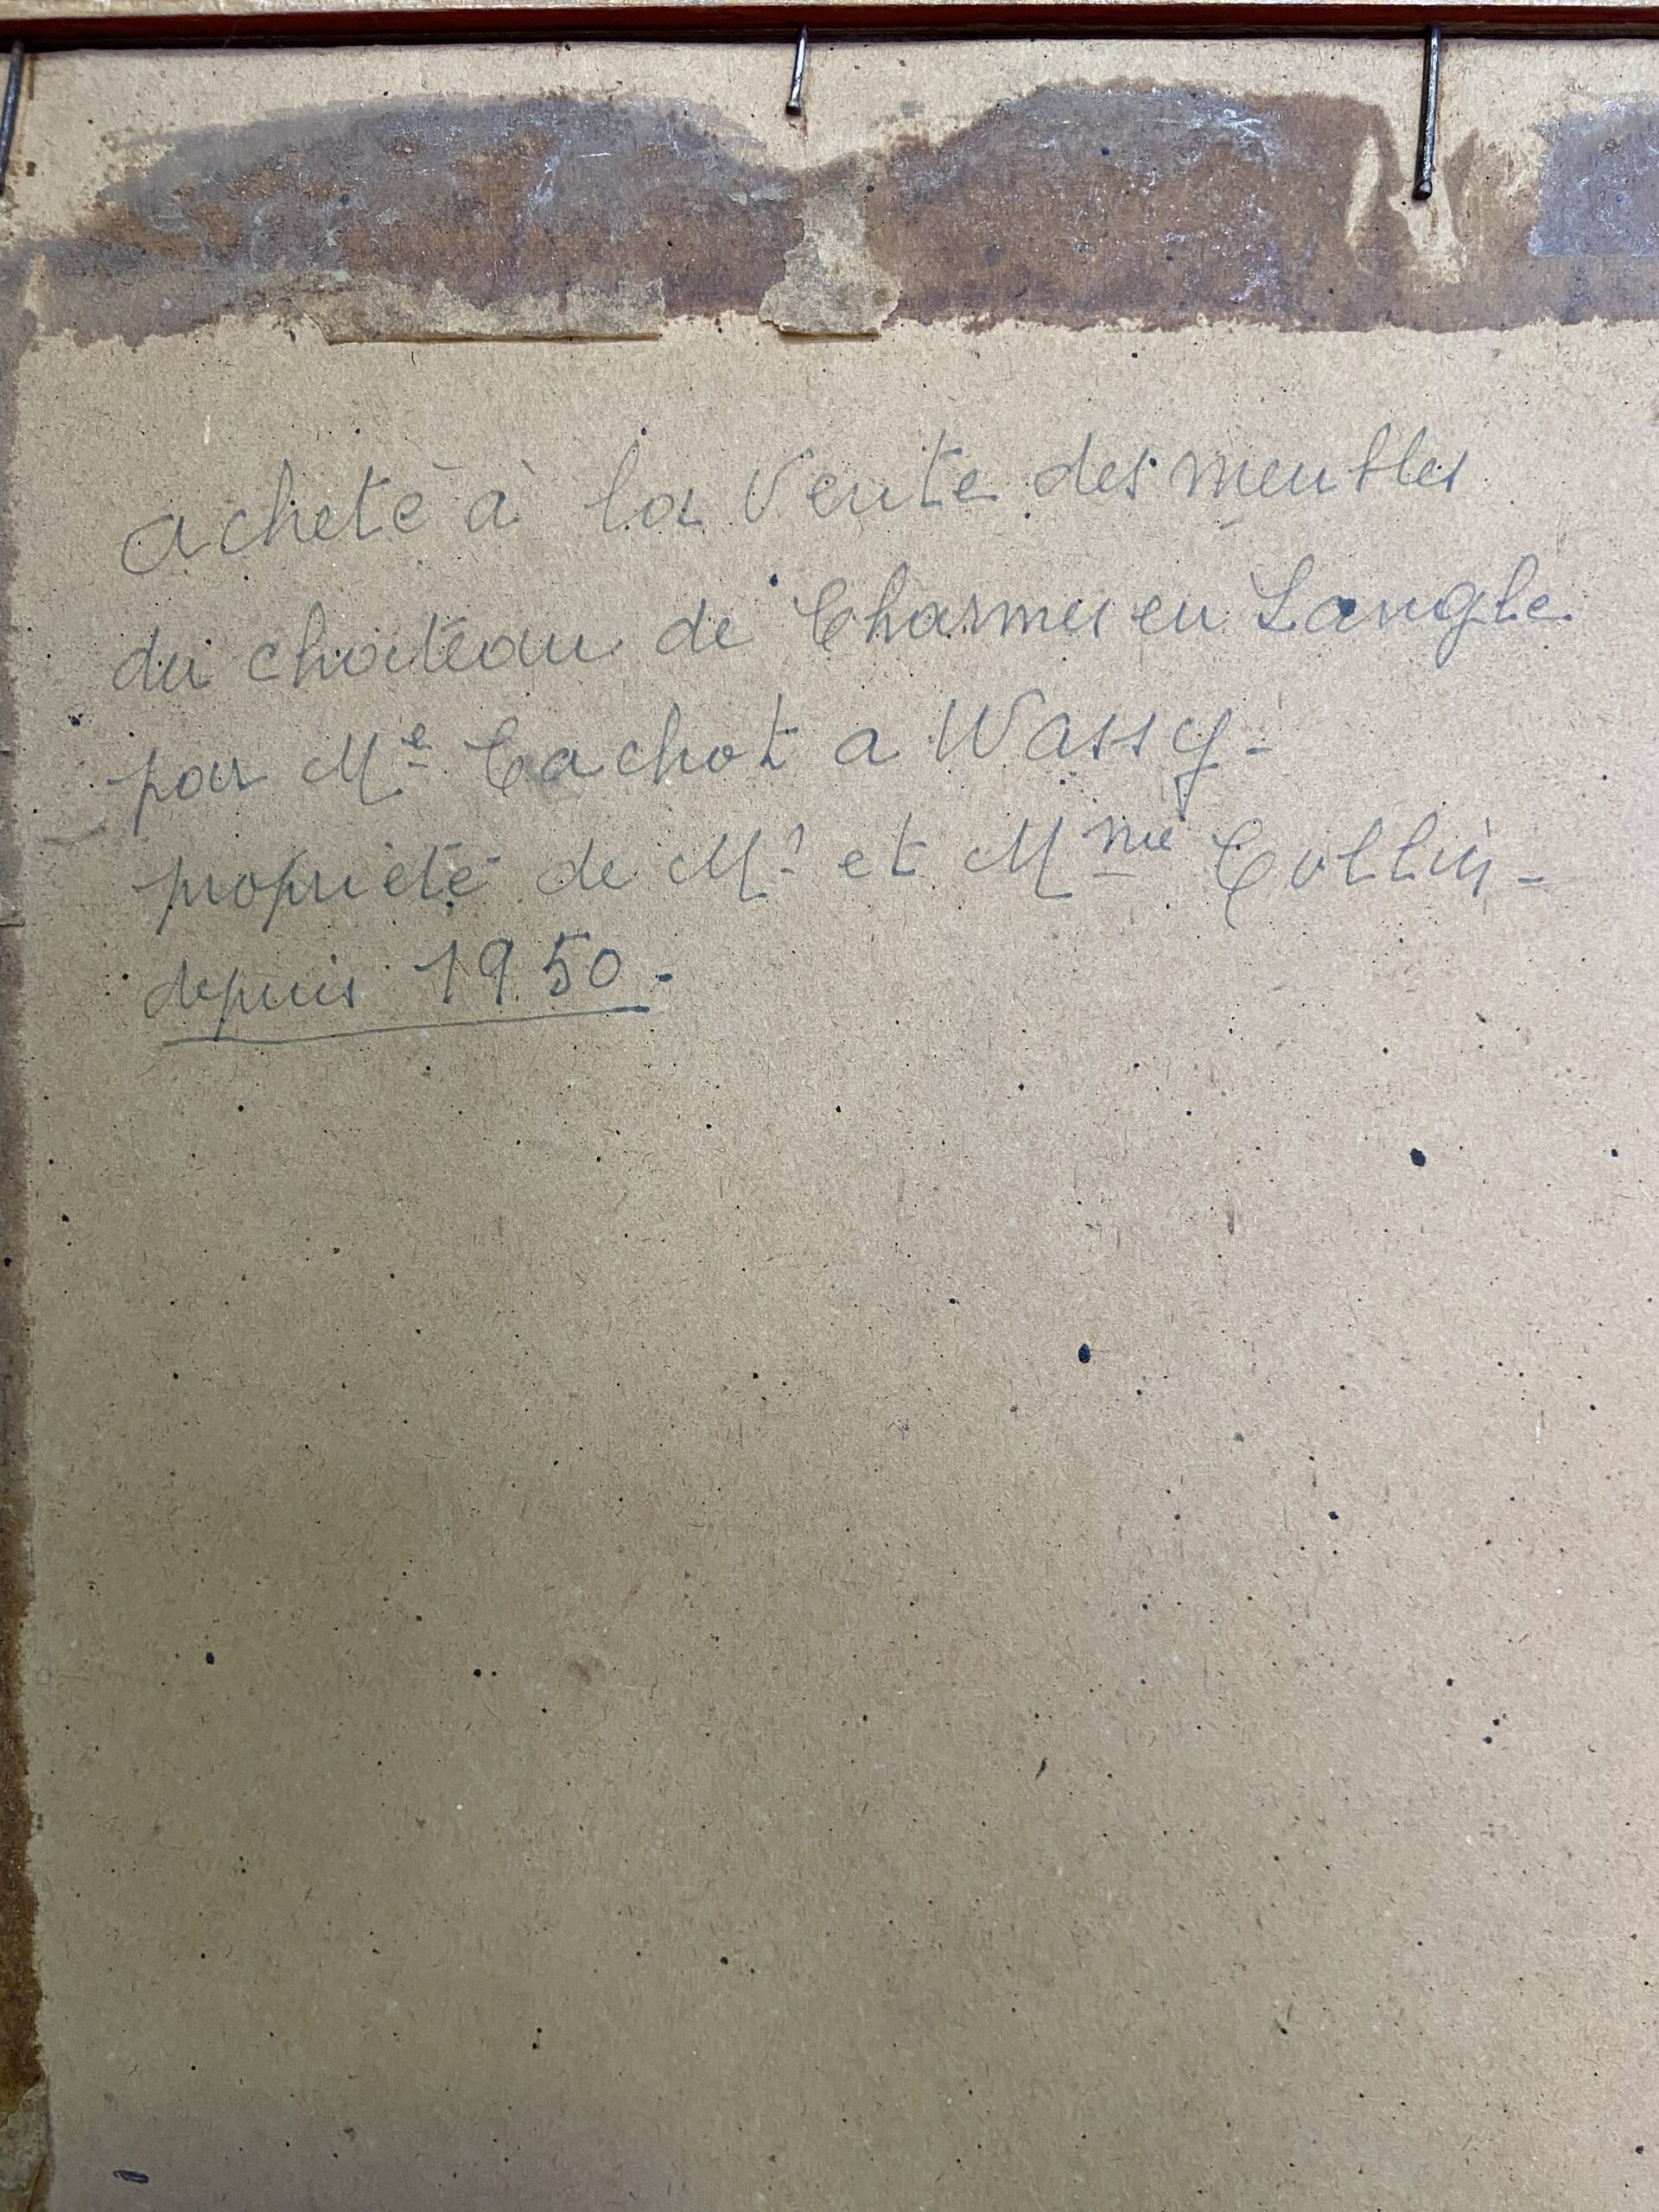 acheté à la Vente des meubles
du chateau de Charmes en Langle
par Me Cachot a Wassy -
propriété de Mr et Mme Collin -
depuis 1950 -